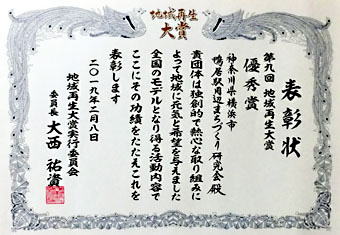 地域再生
大賞
表彰状
第九回 地域再生大賞
優秀賞
神奈川県横浜市
鴨居駅周辺まちづくり研究会 殿
貴団体は独創的で熱心な取り組みに
よって地域に元気と希望を与えました
全国のモデルとなり得る活動内容で
ここにその功績をたたえこれを
表彰します
二〇一九年二月八日
地域再生大賞実行委員会
委員長 大西 祐資